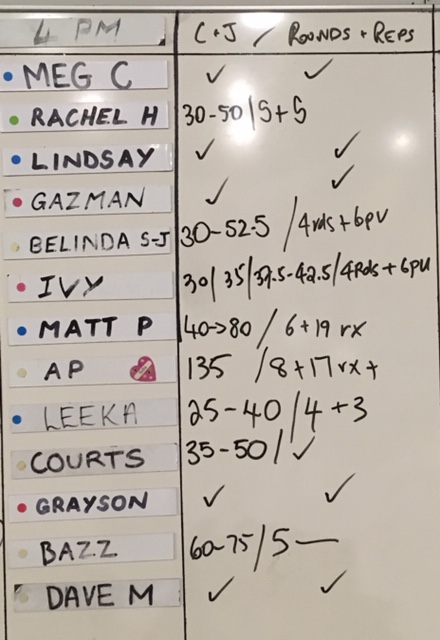 4 PM C+J / ROUNDS + REPS
MEG C ✓ ✓
RACHEL H 30-50 / 5+5
LINDSAY ✓ ✓
GAZMAN ✓ ✓
BELINDA S-J 30-52.5 / 4rds+6pu
IVY 30/35/37.5-42.5/4Rds+6pu
MATT P 40->80 / 6+19 rx
AP 135 / 8+17 rx+
LEEKA 25-40 / 4+3
COURTS 35-50 / ✓
GRAYSON ✓ ✓
BAZZ 60-75 / 5 —
DAVE M ✓ ✓